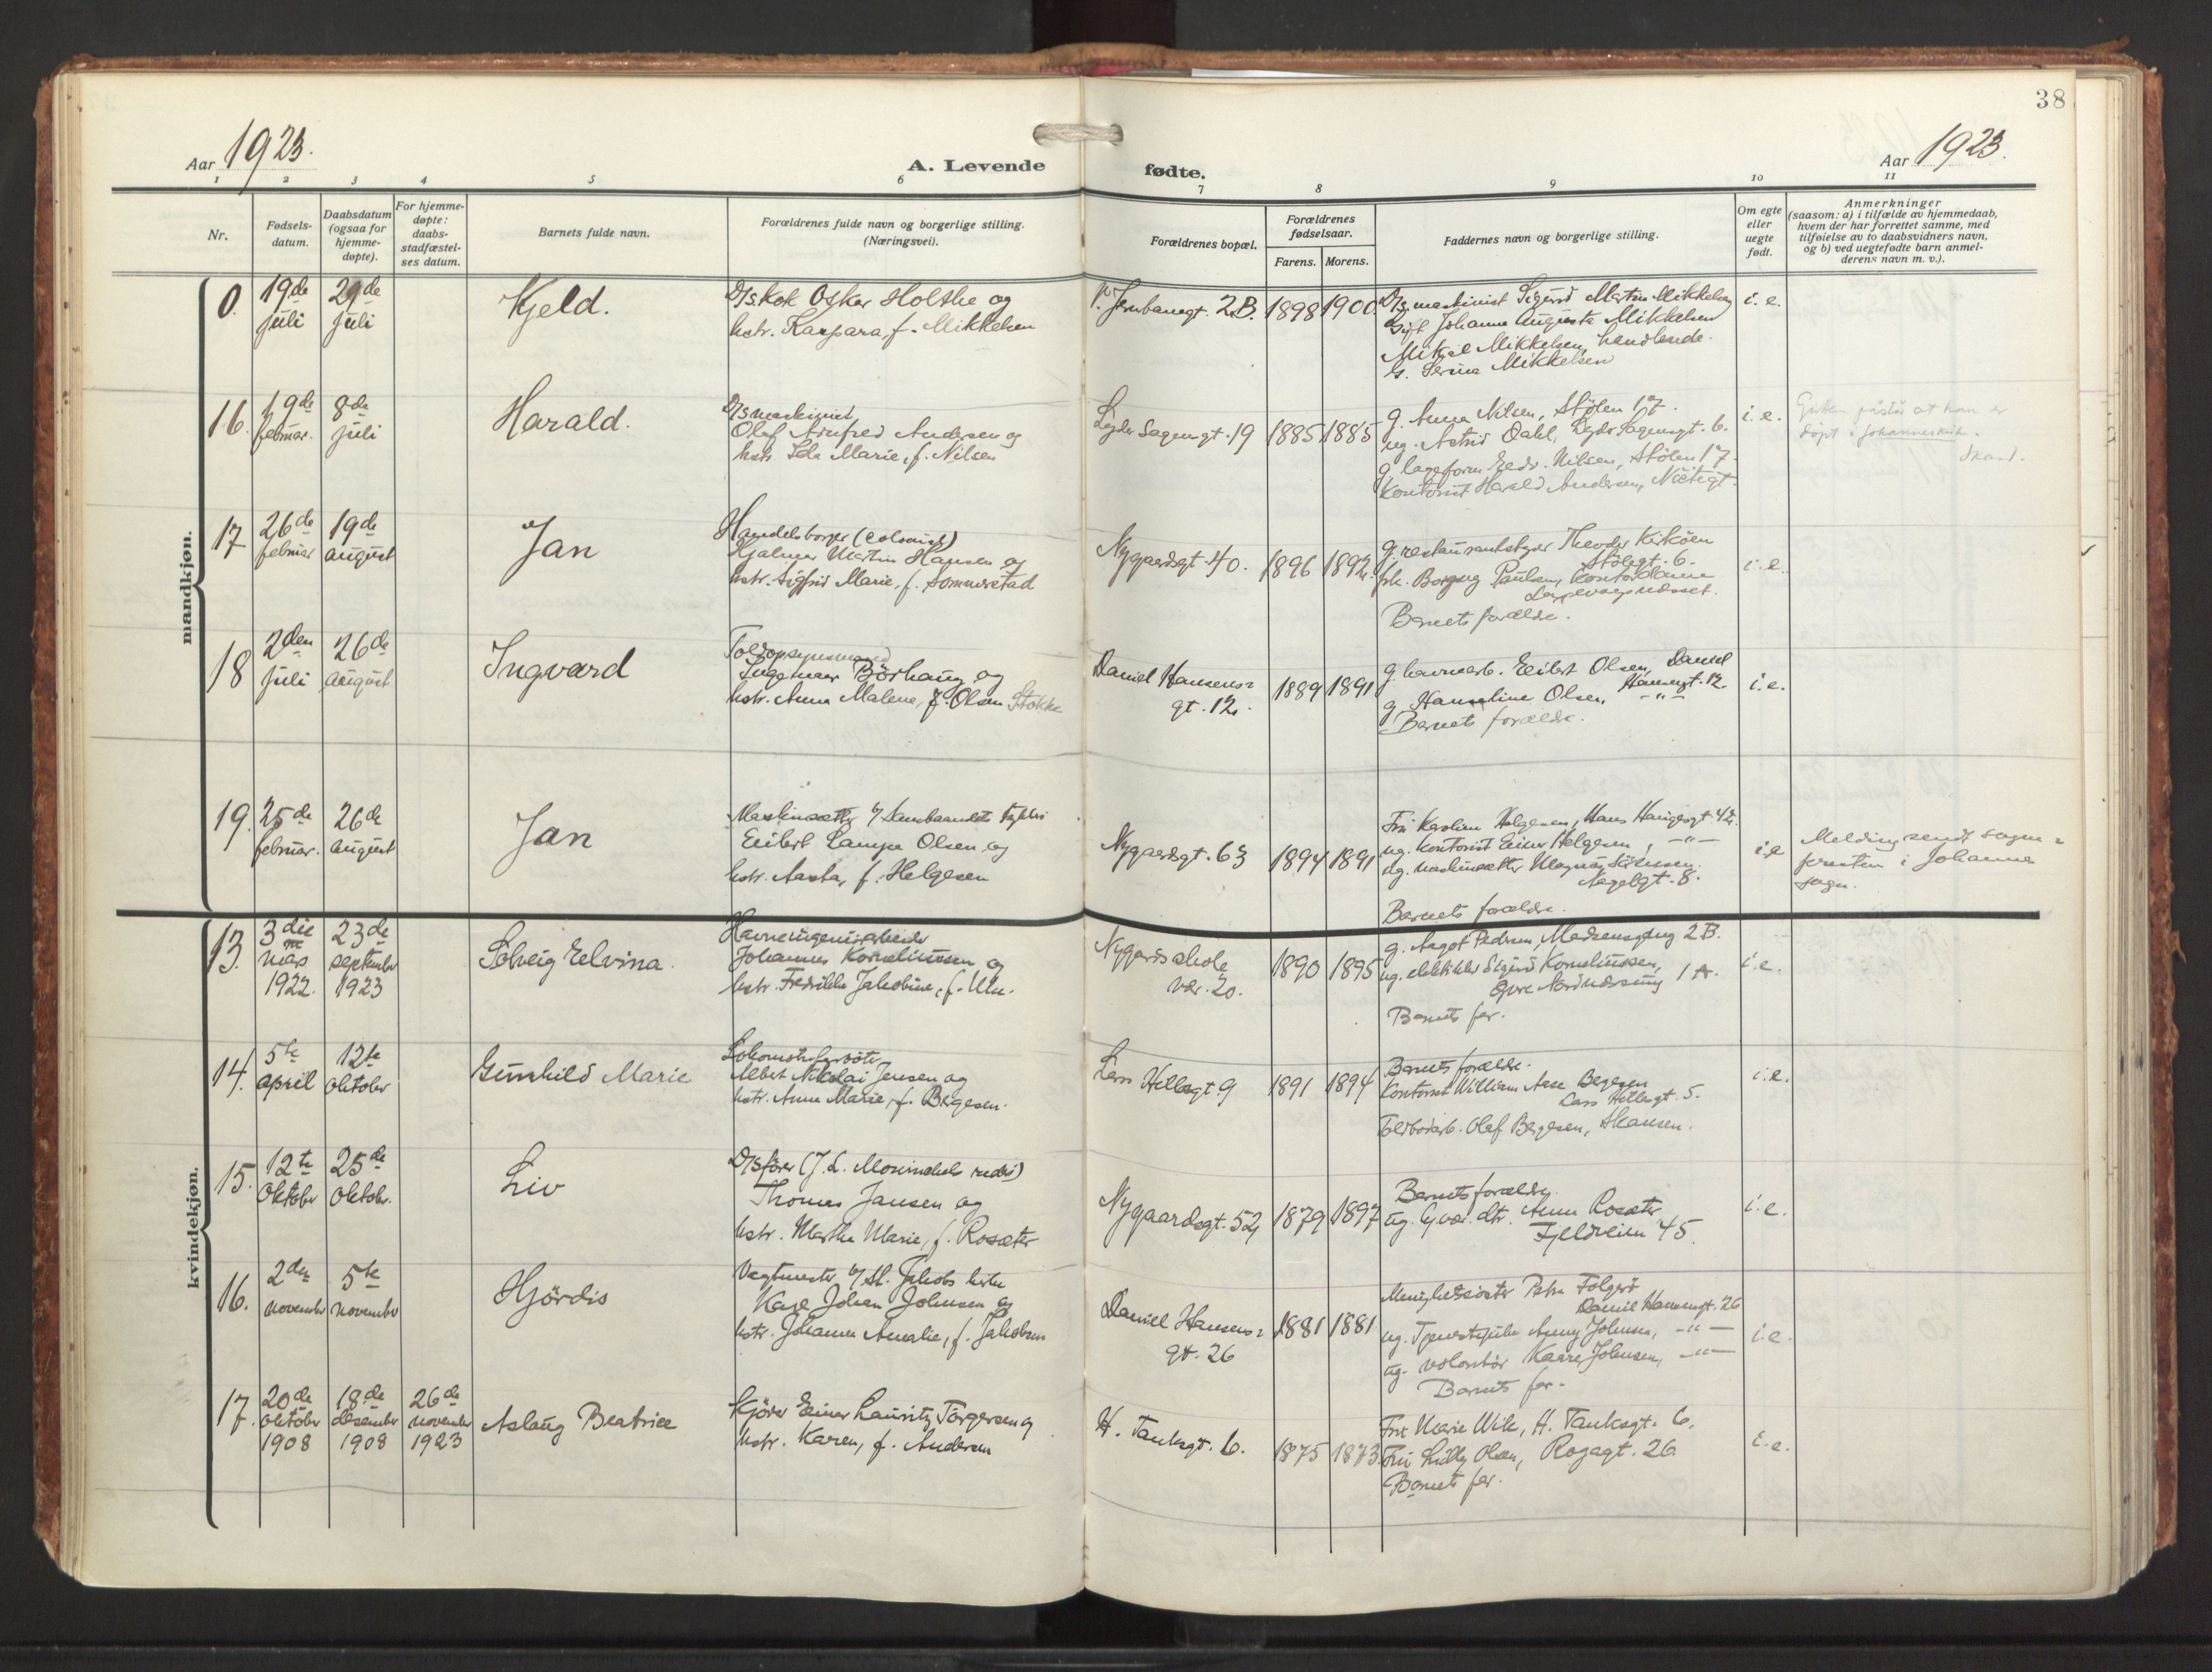 38
Aar 1923.
A. Levende fødte.
Aar 1923.
1 2 3 4 5 6 7 8 9 10 11
Nr.
Fødsels-
datum.
Daabsdatum
(ogsaa for
hjemme-
døpte).
For hjemme-
døpte:
daabs-
stadfæstel-
ses datum.
Barnets fulde navn.
Forældrenes fulde navn og borgerlige stilling.
(Næringsvei).
Forældrenes bopæl.
Forældrenes
fødselsaar.
Farens. Morens.
Faddernes navn og borgerlige stilling.
Om egte
eller
uegte
født.
Anmerkninger
(saasom: a) i tilfælde av hjemmedaab,
hvem der har forrettet samme, med
tilføielse av to daabsvidners navn,
og b) ved uegtefødte barn anmel-
derens navn m. v.).
mandkjøn.
0.
19de
juli
29de
juli
Kjeld.
D/skok Oskar Holthe og
hstr. Kaspara f. Mikkelsen
Jernbanegt. 2B.
1898 1900
D/s. maskinist Sigurd Martin Mikkelsen
Gift Johanne Augusta Mikkelsen
Mikal Mikkelsen, handlende.
G. Serina Mikkelsen
i. e.
16.
19de
februar.
8de
juli
Harald.
D/smaskinist
Olaf Arnfred Andersen og
hstr. Ida Marie, f. Nilsen
Lyder Sagensgt. 19
1885 1885
g. Anna Nilsen, Stølen 17.
ug. Astrid Dahl, Lyder Sagensgt. 6.
g. lagerform. Edv. Nilsen, Stølen 17.
Kontorist Harald Andersen,
i. e.
påstår at han er
døpt i Johanneskirk.
17
26de
februar
19de
august
Jan
Handelsborger (colonial)
Hjalmar Martin Hansen og
hstr. Sigfrid Marie, f. Sommerstad
Nygaardsgt. 40.
1896 1892
g. restaurantstyrer Theodor Kirköen
6.
frk. Borgny Paulsen, Kontordame
Barnets forældre.
i. e.
18
2den
juli
26de
august
Ingvard
Toldopsynsmand
Ingemar Börhaug og
hstr. Anna Malene, f. Olsen Stokke
Daniel Hansens=
gt. 12.
1889 1891
g. havnearb. Eilert Olsen, Daniel
Hansensgt. 12.
g. Hanseline Olsen, -"-
Barnets forældre.
i. e.
19.
25de
februar.
26de
august
Jan
Maskinsætter
Eilert Lampe Olsen og
hstr. Aasta, f. Helgesen
Nygaardsgt. 63
1894 1891
Fru Karoline Helgesen, Hans Haugesgt. 42.
ug. Kontorist Einar Helgesen, -"-
ug. maskinsætter Magnus Sörensen.
8.
Barnets forældre.
i. e
Melding sendt sogne=
presten i Johannes
sogn.
kvindekjøn.
13.
3die
mars
1922.
23de
september
1923
Solveig Elvina.
Johannes Korneliussen og
hstr. Fredrikke Jakobine, f.
Nygaards skole
20.
1890 1895
g. Aagot Pedersen, 2B.
ug. elektriker Sigurd Korneliussen,
Øvre 1A.
Barnets far.
i. e.
14.
5te
april
12te
oktober
Gunhild Marie
Lokomotivfyrbøter
Albert Nikolai Jensen og
hstr. Anna Marie, f. Bergesen.
Lars Hillesgt. 9
1891 1894
Barnets forældre.
Kontorist William Aase Bergesen
Lars Hillesgt. 5.
Toldbodarb. Olaf Bergesen, Skansen.
i. e.
15.
12te
Oktober
25de
Oktob.
Liv
D/sfører (J. L. Mowinckels rederi)
Thomas Jansen og
hstr. Martha Marie, f. Rosæter
Nygaardsgt. 52
1879 1897
Barnets forældre.
ug. dtr. Anna Rosæter
Fjeldveien 45
i. e.
16.
2den
november
5te
november
Hjördis
Vagtmester v/ St. Jakobs kirke
Karl Johan Johnsen og
hstr. Johanna Amalie, f. Jakobsen
Daniel Hansens=
gt. 26
1881 1881
Menighetssøster Petra Folgerö
Daniel Hansensgt. 26
ug. Tjenestepike Anny Johnsen, -"-
ug. volontør Kaare Johnsen, -"-
Barnets far.
i. e.
17.
20de
oktober
1908
18de
desember
1908
26de
november
1923
Aslaug Beatrice
Kjører Einar Lauritz Torgersen og
hstr. Karen, f. Andersen
H. Tanksgt. 6.
1875 1873.
Fru Marie Wik, H. Tanksgt. 6.
Fru Lully Olsen, Rogagt. 26
Barnets far.
E. e.